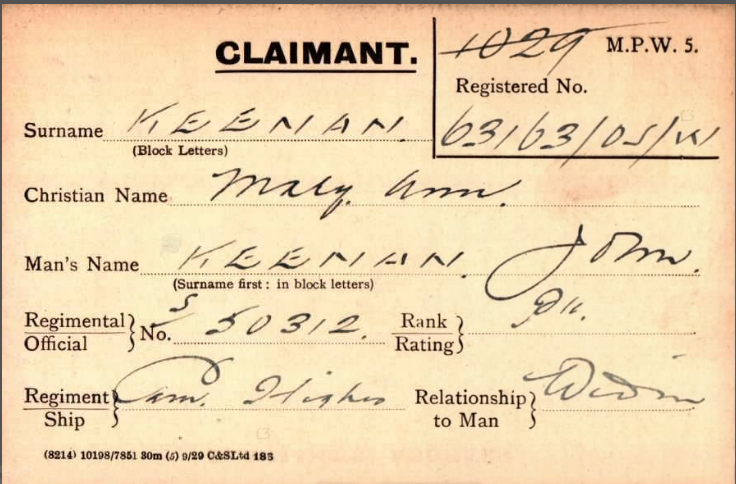 1029 M.P.W. 5.
CLAIMANT.
Registered No.
Surname KEENAN.
(Block Letters)
63163/OS/W
Christian Name Mary Ann.
Man's Name KEENAN. John.
(Surname first: in block letters)
Regimental Official } No. S/ 50312. Rank Rating } Pte.
Regiment Ship } Cam. Highrs Relationship to Man } Widow
(8214) 10198/7851 30m (5) 9/29 C&SLtd 183